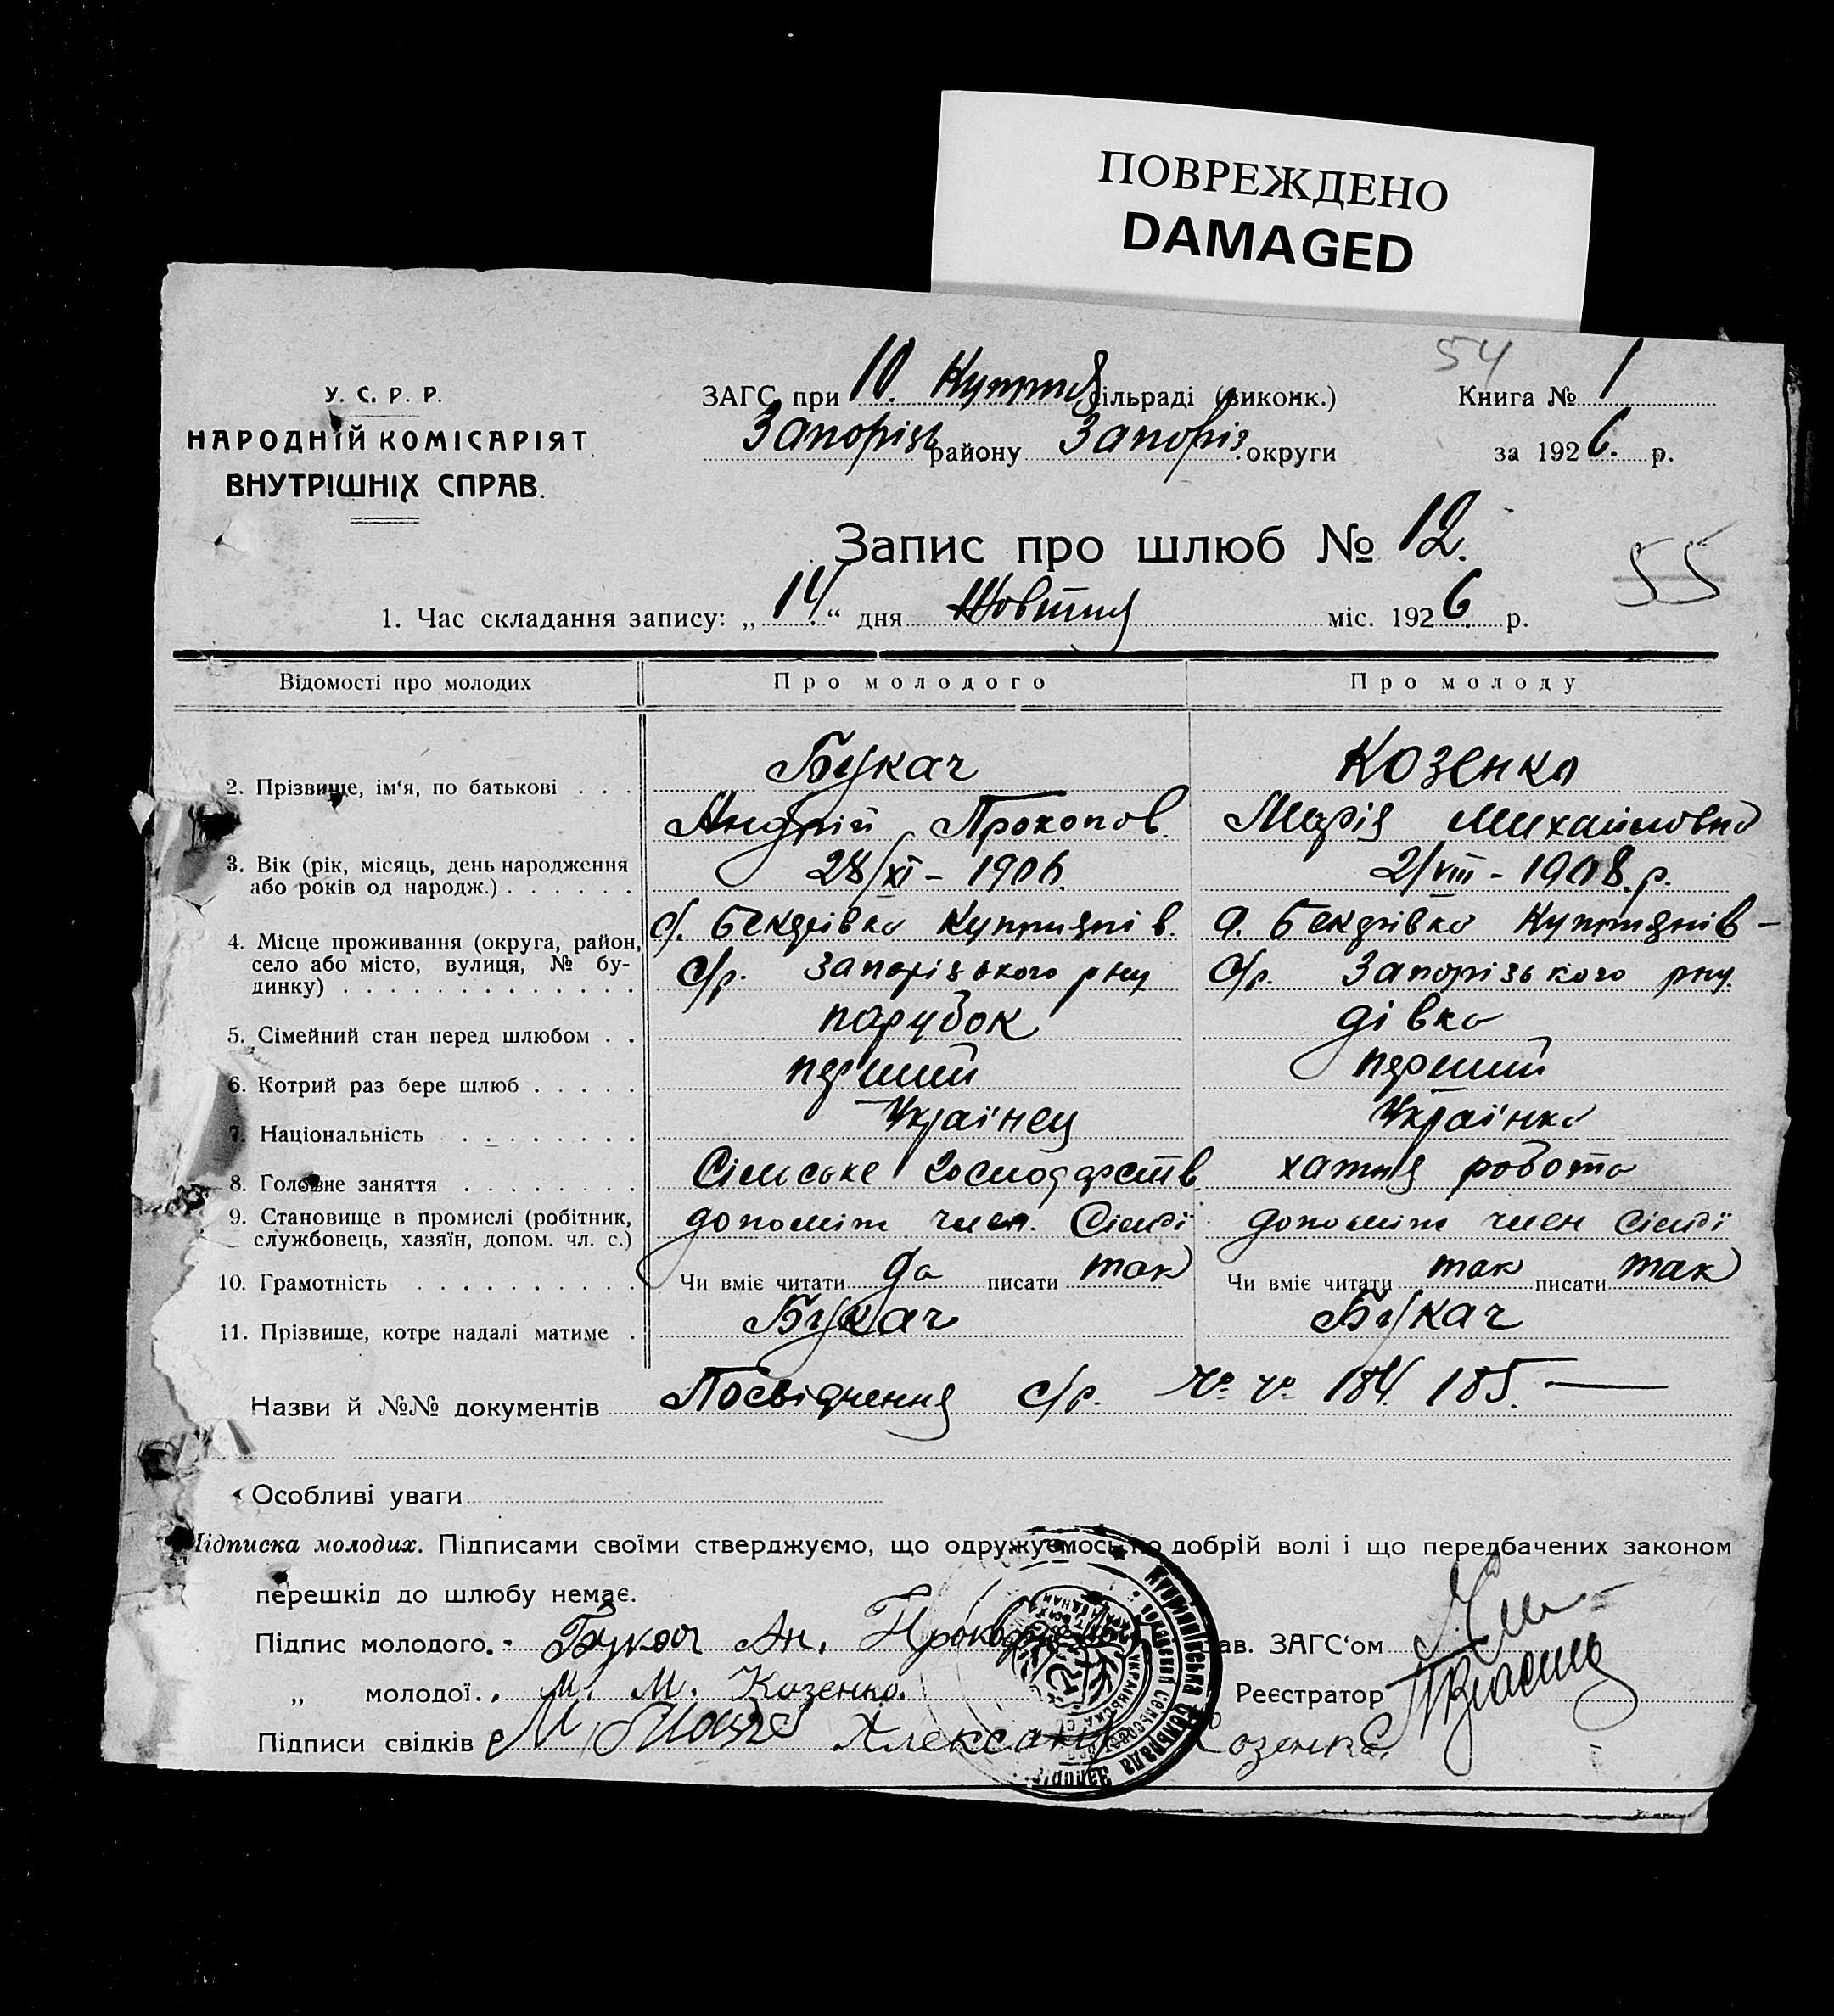 ПОВРЕЖДЕНО
DAMAGED
54
У. С. Р. Р.
НАРОДНІЙ КОМІСАРІЯТ
ВНУТРІШНІХ СПРАВ.
ЗАГС при 10. Куптия сільраді (виконк.)
Книга № 1
Запорізь району Запоріз. округи
за 1926. р.
Запис про шлюб № 12.
55
1. Час складання запису: „14“ дня Жовтня міс. 1926. р.
Відомості про молодих
Про молодого
Про молоду
2. Прізвище, ім‘я, по батькові . . .
Букач
Андрій Прокопов.
Козенко
Марія Михайловна
3. Вік (рік, місяць, день народження
або років од народж.) . . . . . .
28/XI - 1906.
2/VIII - 1908. р.
4. Місце проживання (округа, район,
село або місто, вулиця, № бу-
динку) . . . . . . . . . . . . .
с/р. Запорізького рну
с/р. Запорізького рну.
5. Сімейний стан перед шлюбом . .
парубок
дівка
6. Котрий раз бере шлюб . . . . .
перший
перший
7. Національність . . . . . . .
Українец
Українка
8. Головне заняття . . . . . . . .
Сільське господарств
хатня робота
9. Становище в промислі (робітник,
службовець, хазяїн, допом. чл. с.)
допоміж член. Сімї
допоміж член Сімї
10. Грамотність . . . . . . . . . .
Чи вміє читати да писати так
Чи вміє читати так писати так
11. Прізвище, котре надалі матиме .
Букач
Букач
Назви й №№ документів Посвідчення с/р. № № 184. 185. —
Особливі уваги
Підписка молодих. Підписами своїми стверджуємо, що одружуємось по добрій волі і що передбачених законом
перешкід до шлюбу немає.
Підпис молодого. Букач Ан.
Зав. ЗАГС‘ом
„ молодої. М. М. Козенко.
Реєстратор
Підписи свідків Александр Козенко.